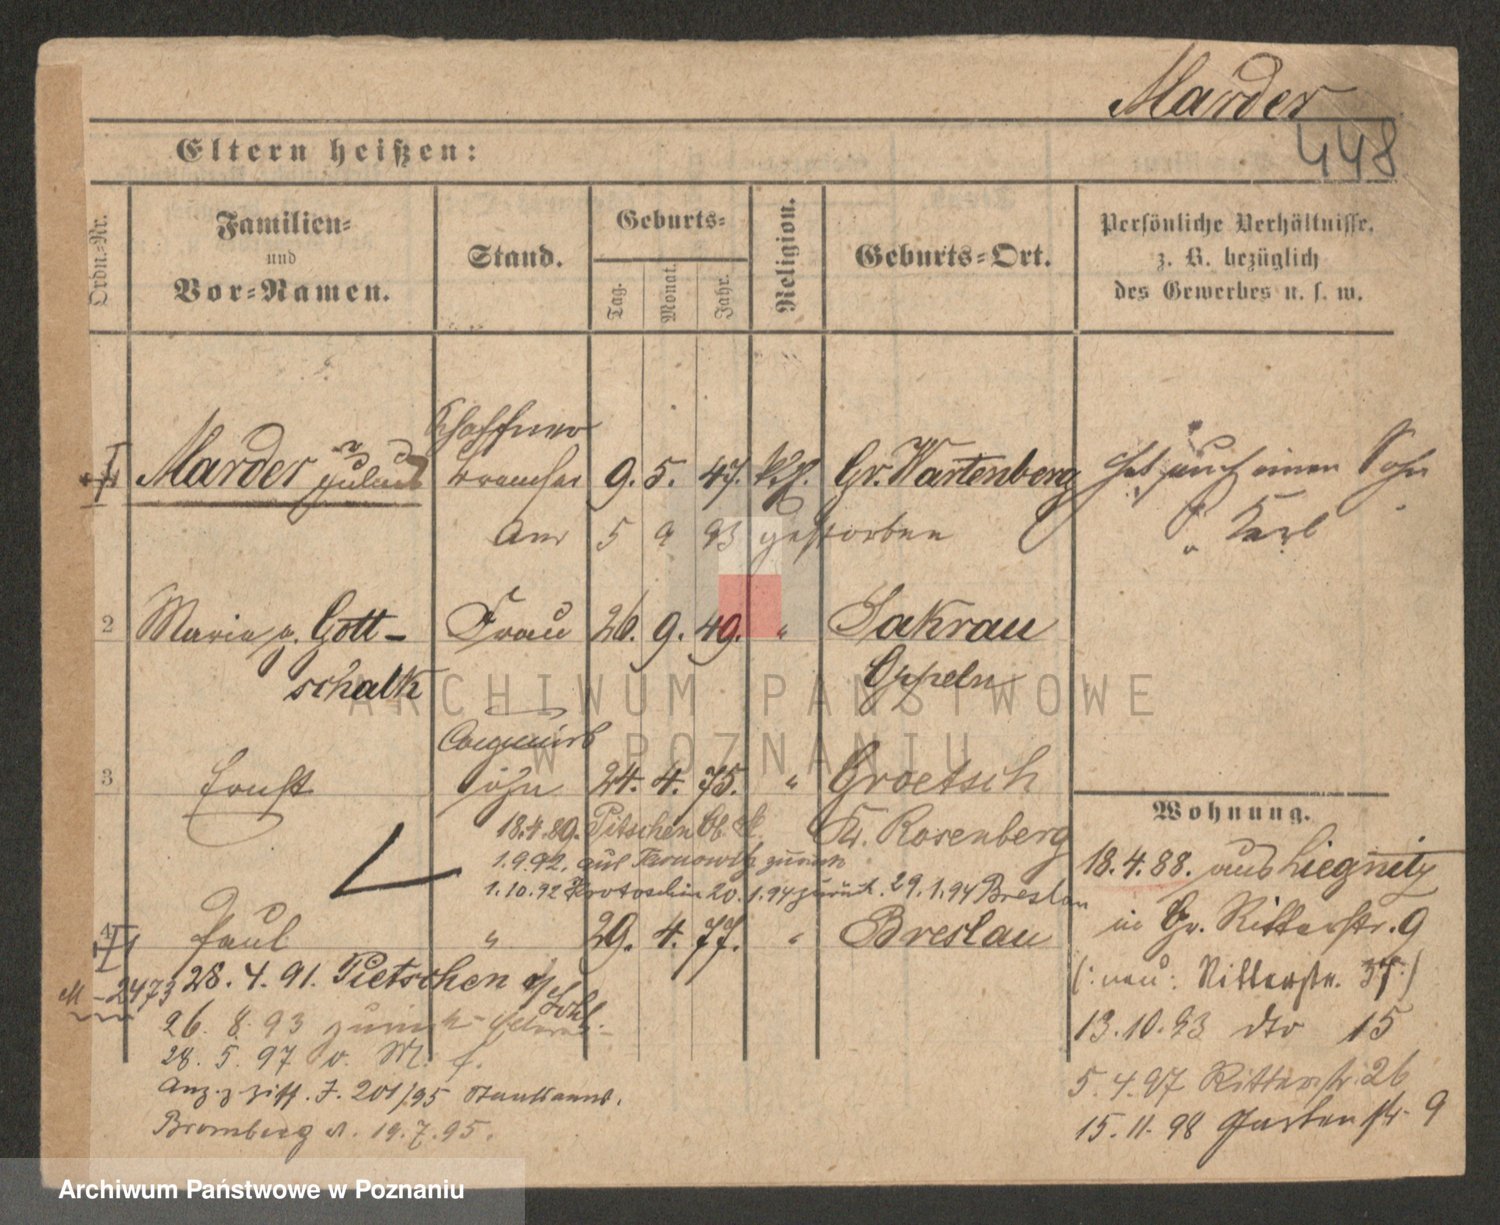 Marder
448
Eltern heißen:
Ordn.-Nr.
Familien-
und
Vor-Namen.
Stand.
Geburts-
Tag.
Monat.
Jahr.
Religion.
Geburts-Ort.
Persönliche Verhältnisse,
z. B. bezüglich
des Gewerbes u. s. w.
Schaffner
Marder Julius 9. 5. 47. Gr. Wartenberg hat auch einen Sohn
am 5 9 93 gestorben " Karl
2 Maria g. Gott- Frau 26. 9. 49. " Sakrau
schalk Oppeln
3 Ernst Sohn 24. 4. 75. " Groetsch
18.4.89. Pitschen Kr. Rosenberg
1.9.92. aus Tarnowitz zurück
1.10.92 Krotoschin 20.1.94 zurück. 29.1.94 Breslau
4 Paul " 29. 4. 77. " Breslau
M - 2473 28. 4. 91. Pietschen
26. 8. 93 zurück
28. 5. 97 v. M.
Anz. z. Ziff. J. 201/95 Staatsanw.
Bromberg v. 19.7.95.
Wohnung.
18.4.88. aus Liegnitz
in Gr. Ritterstr. 9
(: neu: Ritterstr. 37:)
13.10.93 dto 15
5.4.97 Ritterstr. 26
15.11.98 Gartenstr. 9
ARCHIWUM PAŃSTWOWE
W POZNANIU
Archiwum Państwowe w Poznaniu